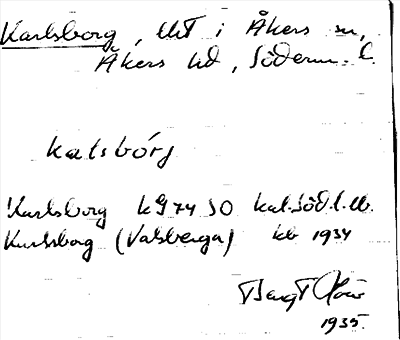 Karlsborg, tht i Åkers sn,
Åkers hd, Söderm. l.
kalsbórj
Karlsborg kG 74 SO kat.söd.l.
Karlsborg (Valsberga) kb 1934
Bengt
1935.